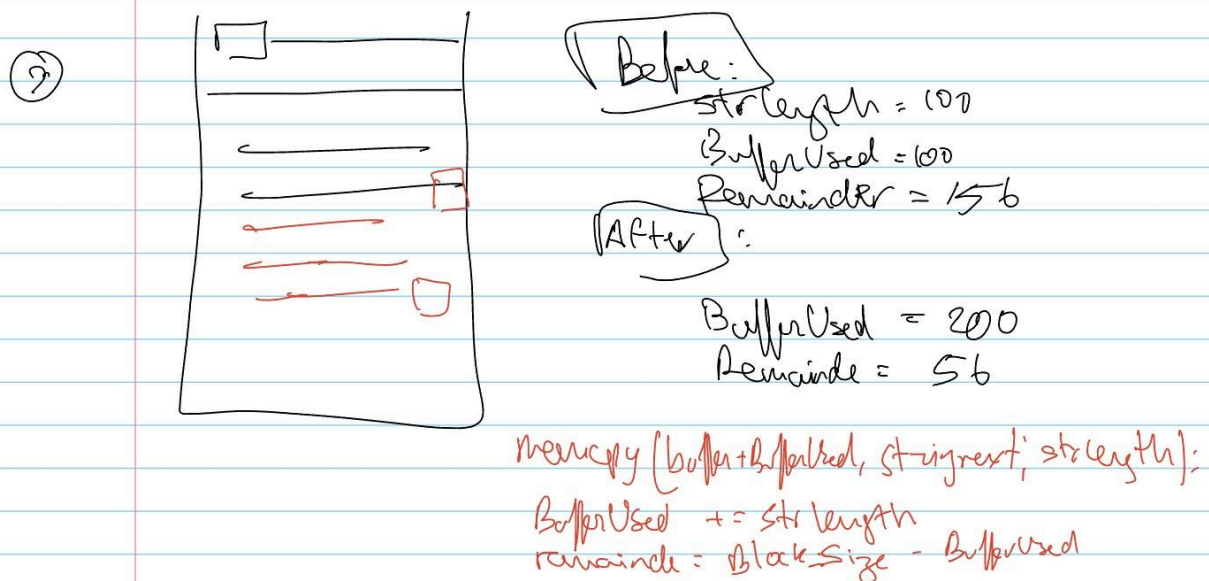 ?
Before:
strlength = 100
BufferUsed = 100
Remainder = 156
After :
BufferUsed = 200
Remainde = 56
memcpy (buffer+BufferUsed, strlength);
BufferUsed += strlength
remainde = BlockSize - BufferUsed